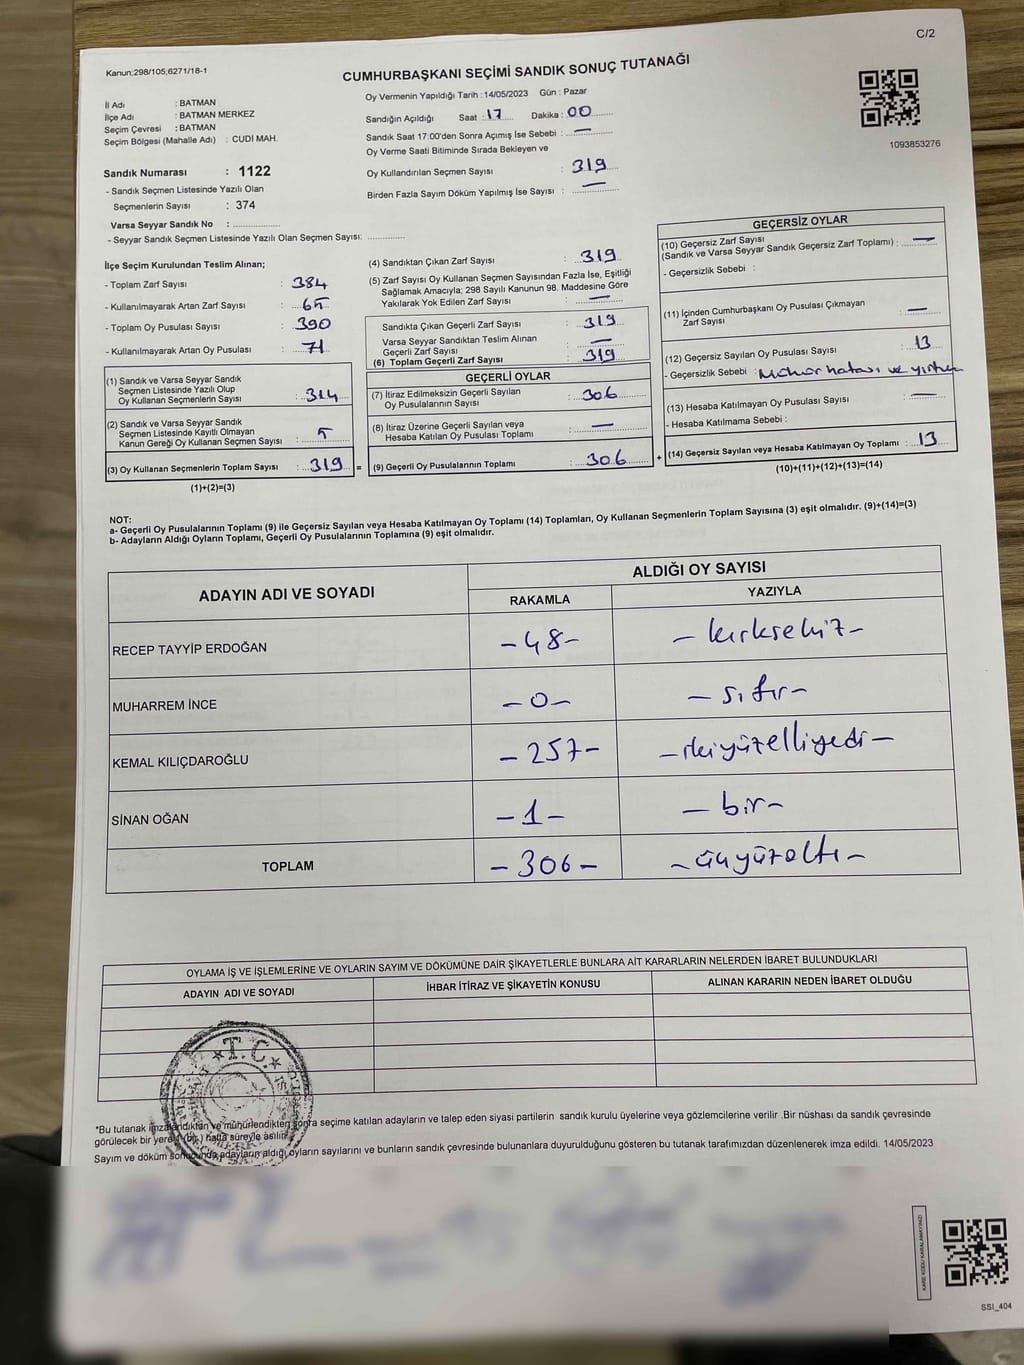 C/2
Kanun;298/105;6271/18-1
CUMHURBAŞKANI SEÇİMİ SANDIK SONUÇ TUTANAĞI
İl Adı : BATMAN
İlçe Adı : BATMAN MERKEZ
Seçim Çevresi : BATMAN
Seçim Bölgesi (Mahalle Adı) : CUDİ MAH.
Sandık Numarası : 1122
- Sandık Seçmen Listesinde Yazılı Olan
Seçmenlerin Sayısı : 374
Varsa Seyyar Sandık No :
- Seyyar Sandık Seçmen Listesinde Yazılı Olan Seçmen Sayısı:
Oy Vermenin Yapıldığı Tarih : 14/05/2023 Gün : Pazar
Sandığın Açıldığı Saat : 17 Dakika : 00
Sandık Saat 17:00'den Sonra Açımış İse Sebebi : —
Oy Verme Saati Bitiminde Sırada Bekleyen ve
Oy Kullandırılan Seçmen Sayısı : 319
Birden Fazla Sayım Döküm Yapılmış İse Sayısı : —
1093853276
İlçe Seçim Kurulundan Teslim Alınan;
- Toplam Zarf Sayısı : 384
- Kullanılmayarak Artan Zarf Sayısı : 65
- Toplam Oy Pusulası Sayısı : 390
- Kullanılmayarak Artan Oy Pusulası : 71
(1) Sandık ve Varsa Seyyar Sandık
Seçmen Listesinde Yazılı Olup
Oy Kullanan Seçmenlerin Sayısı : 314
(2) Sandık ve Varsa Seyyar Sandık
Seçmen Listesinde Kayıtlı Olmayan
Kanun Gereği Oy Kullanan Seçmen Sayısı : 5
(3) Oy Kullanan Seçmenlerin Toplam Sayısı : 319 =
(1)+(2)=(3)
(4) Sandıktan Çıkan Zarf Sayısı : 319
(5) Zarf Sayısı Oy Kullanan Seçmen Sayısından Fazla İse, Eşitliği
Sağlamak Amacıyla; 298 Sayılı Kanunun 98. Maddesine Göre
Yakılarak Yok Edilen Zarf Sayısı : —
Sandıkta Çıkan Geçerli Zarf Sayısı : 319
Varsa Seyyar Sandıktan Teslim Alınan
Geçerli Zarf Sayısı : —
(6) Toplam Geçerli Zarf Sayısı : 319
GEÇERLİ OYLAR
(7) İtiraz Edilmeksizin Geçerli Sayılan
Oy Pusulalarının Sayısı : 306
(8) İtiraz Üzerine Geçerli Sayılan veya
Hesaba Katılan Oy Pusulası Toplamı : —
(9) Geçerli Oy Pusulalarının Toplamı : 306 +
GEÇERSİZ OYLAR
(10) Geçersiz Zarf Sayısı
(Sandık ve Varsa Seyyar Sandık Geçersiz Zarf Toplamı) : —
- Geçersizlik Sebebi :
(11) İçinden Cumhurbaşkanı Oy Pusulası Çıkmayan
Zarf Sayısı : —
(12) Geçersiz Sayılan Oy Pusulası Sayısı : 13
- Geçersizlik Sebebi : Mühür hatası ve
(13) Hesaba Katılmayan Oy Pusulası Sayısı : —
- Hesaba Katılmama Sebebi :
(14) Geçersiz Sayılan veya Hesaba Katılmayan Oy Toplamı : 13
(10)+(11)+(12)+(13)=(14)
NOT:
a- Geçerli Oy Pusulalarının Toplamı (9) ile Geçersiz Sayılan veya Hesaba Katılmayan Oy Toplamı (14) Toplamları, Oy Kullanan Seçmenlerin Toplam Sayısına (3) eşit olmalıdır. (9)+(14)=(3)
b- Adayların Aldığı Oyların Toplamı, Geçerli Oy Pusulalarının Toplamına (9) eşit olmalıdır.
ADAYIN ADI VE SOYADI
ALDIĞI OY SAYISI
RAKAMLA YAZIYLA
RECEP TAYYİP ERDOĞAN -48- -kırksekiz-
MUHARREM İNCE -0- -sıfır-
KEMAL KILIÇDAROĞLU -257- -ikiyüzelliyedi-
SİNAN OĞAN -1- -bir-
TOPLAM -306- -üçyüzaltı-
OYLAMA İŞ VE İŞLEMLERİNE VE OYLARIN SAYIM VE DÖKÜMÜNE DAİR ŞİKAYETLERLE BUNLARA AİT KARARLARIN NELERDEN İBARET BULUNDUKLARI
ADAYIN ADI VE SOYADI İHBAR İTİRAZ VE ŞİKAYETİN KONUSU ALINAN KARARIN NEDEN İBARET OLDUĞU
★T.C★
*Bu tutanak imzalandıktan ve mühürlendikten sonra seçime katılan adayların ve talep eden siyasi partilerin sandık kurulu üyelerine veya gözlemcilerine verilir .Bir nüshası da sandık çevresinde
görülecek bir yere 1 (bir) hafta süreyle asılır.
Sayım ve döküm sonucunda adayların aldığı oyların sayılarını ve bunların sandık çevresinde bulunanlara duyurulduğunu gösteren bu tutanak tarafımızdan düzenlenerek imza edildi. 14/05/2023
KARE KODU KARALAMAYINIZ!
SSI_404